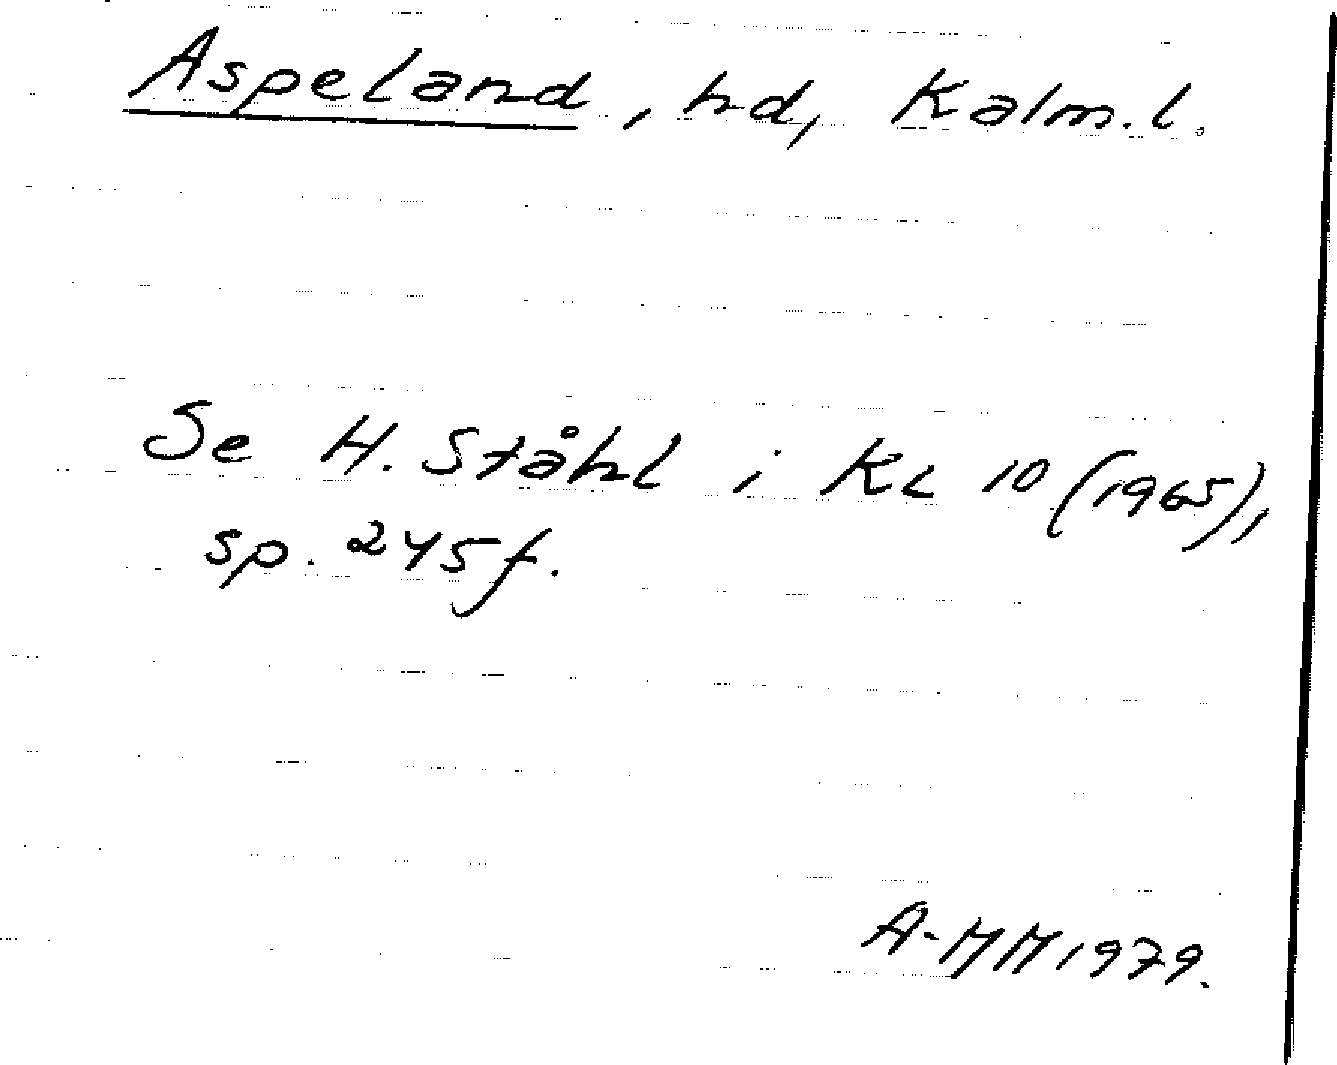 Aspeland, hd, Kalm.l.
Se H. Ståhl i KL 10 (1965),
sp. 245 f.
A-MM 1979.